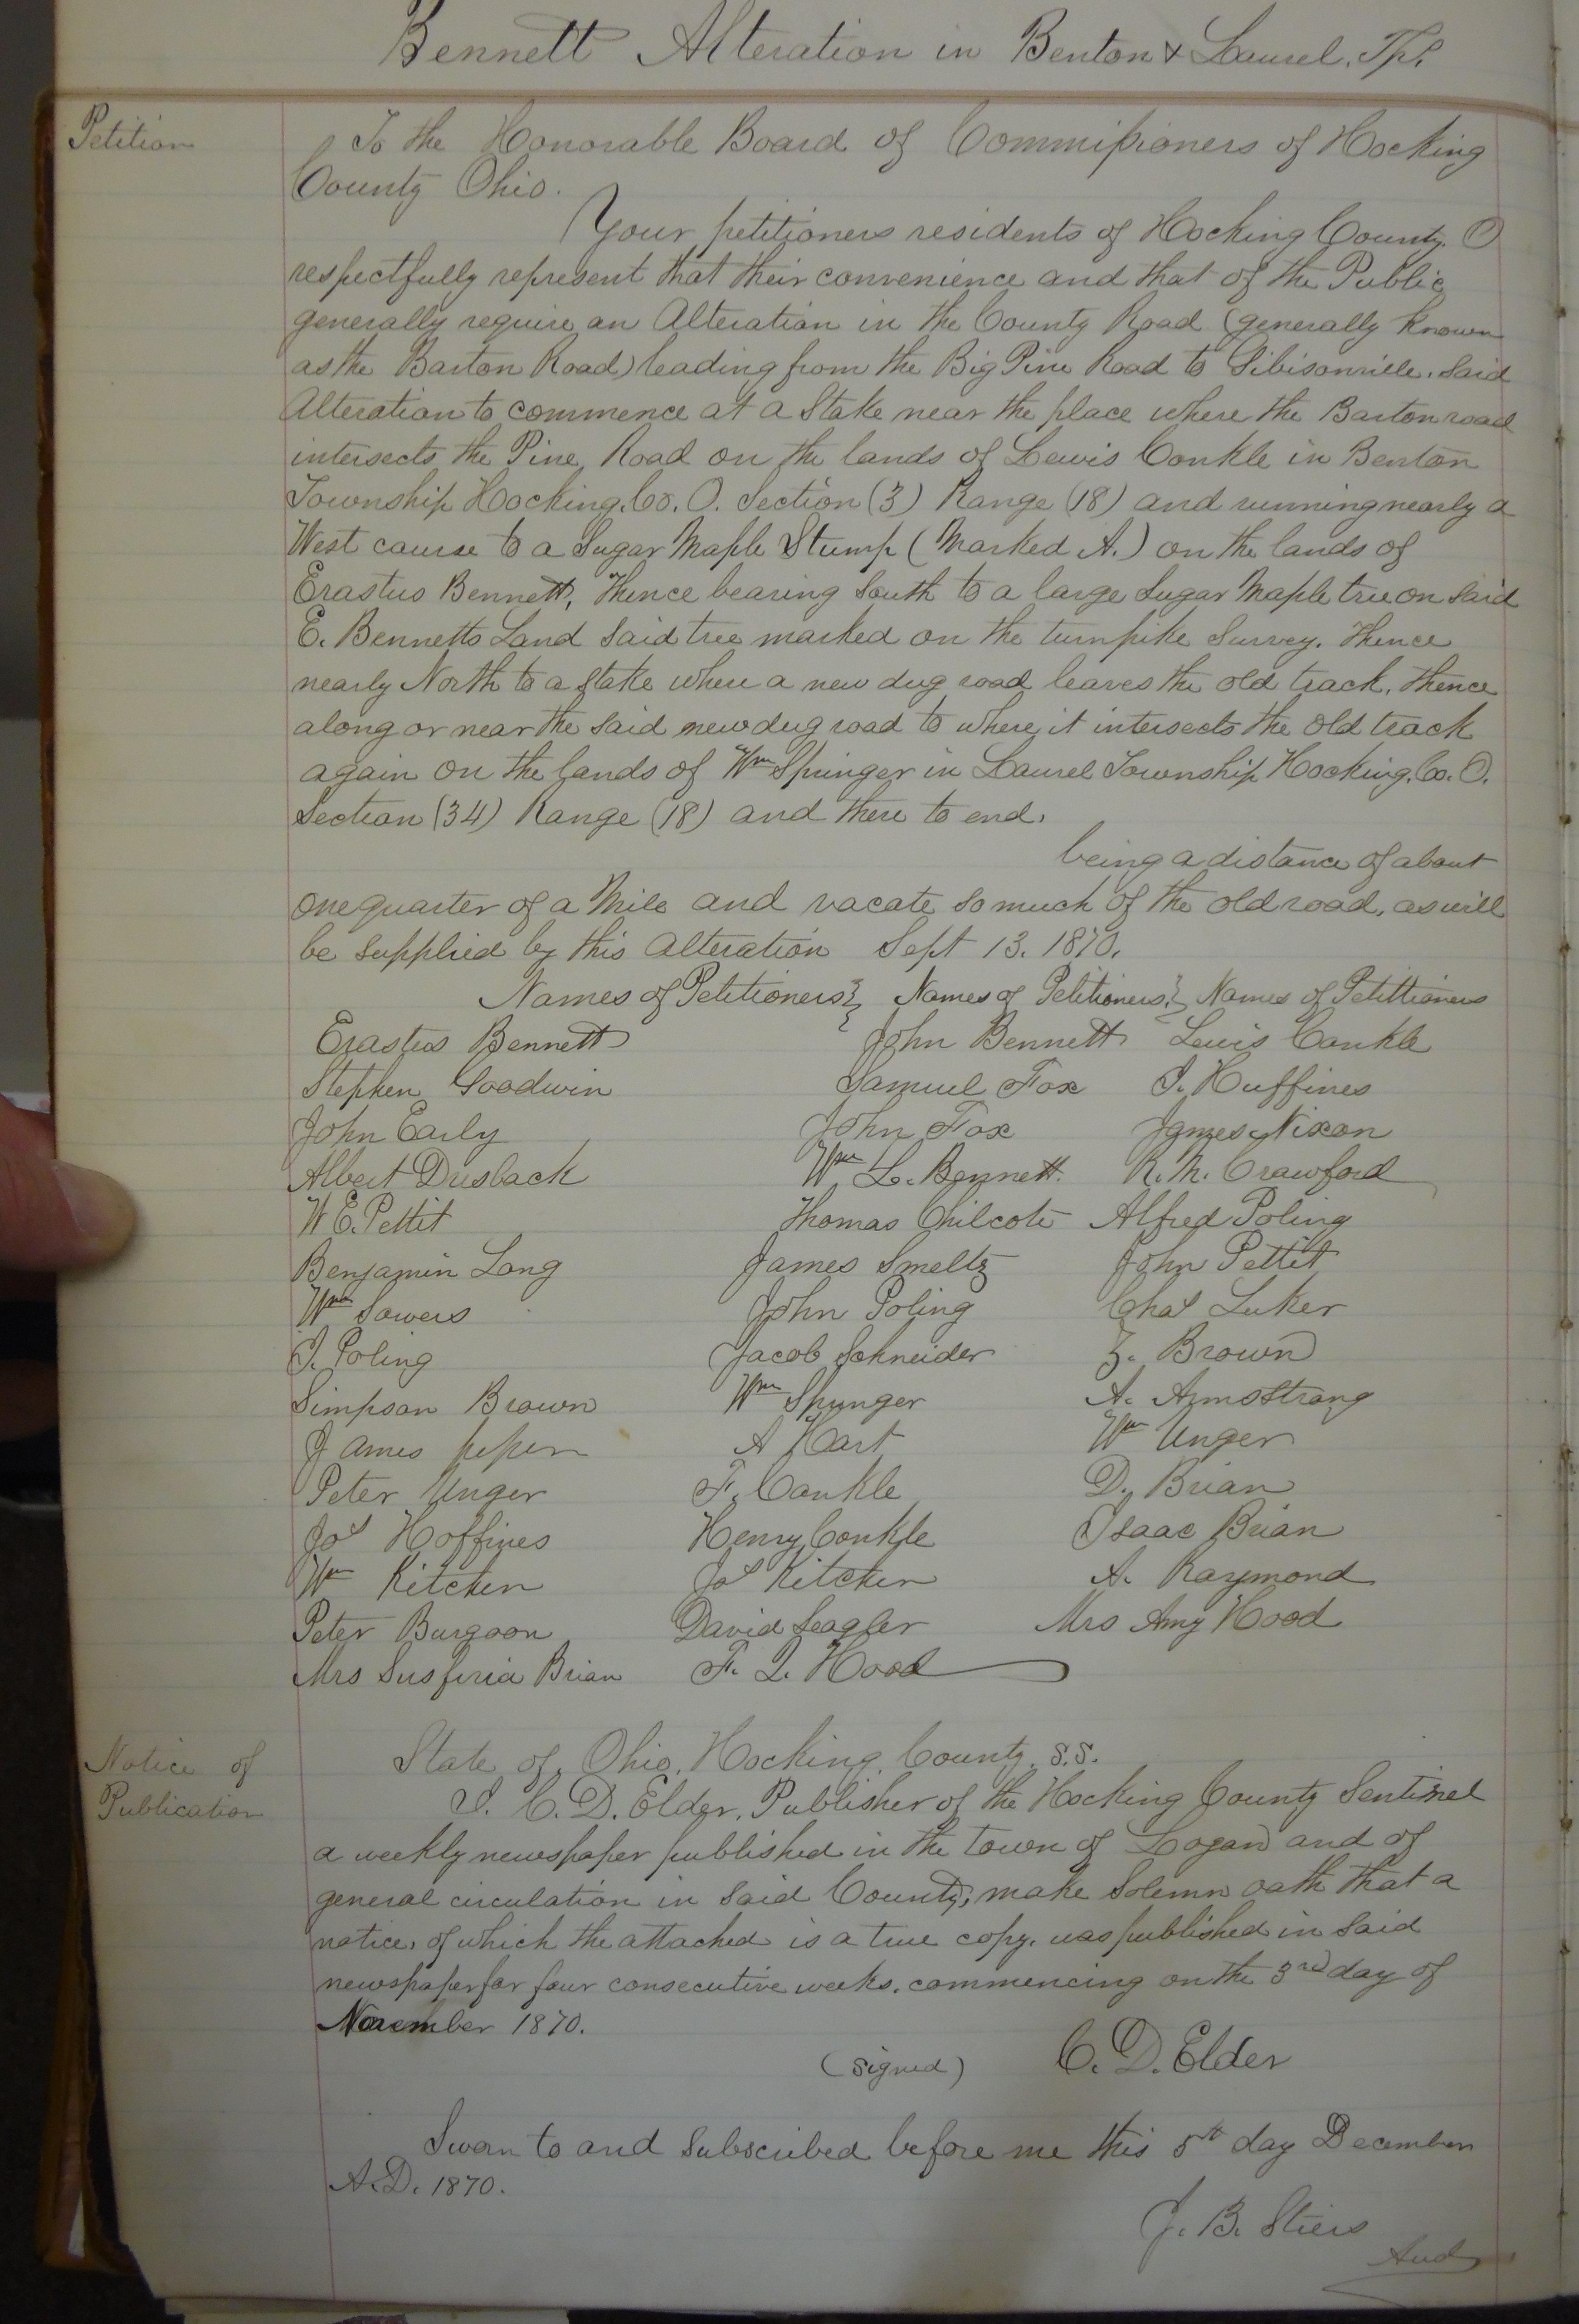 Bennett Alteration in Benton & Laurel. Tps.
Petition
To the Honorable Board of Commissioners of Hocking
County Ohio.
Your petitioners residents of Hocking County. O
respectfully represent that their convenience and that of the Public
generally require an Alteration in the County Road (generally known
as the Barton Road) leading from the Big Pine Road to Gibisonville. Said
Alteration to commence at a Stake near the place where the Barton road
intersects the Pine Road on the lands of Lewis Conkle in Benton
Township Hocking. Co. O. Section (3) Range (18) and running nearly a
West course to a Sugar Maple Stump (Marked A.) on the lands of
Erastus Bennett, Thence bearing South to a large Sugar Maple tree on Said
E. Bennetts Land Said tree marked on the turnpike Survey. Thence
nearly North to a Stake where a new dug road leaves the old track. thence
along or near the said new dug road to where it intersects the old track
again on the lands of Wm Springer in Laurel Township Hocking. Co. O.
Section (34) Range (18) and there to end.
being a distance of about
one quarter of a Mile and vacate so much of the old road, as will
be supplied by this Alteration Sept 13. 1870.
Names of Petitioners } Names of Petitioners. } Names of Petittioners
Erastus Bennett John Bennett Lewis Conkle
Stephen Goodwin Samuel Fox I. Huffines
John Early John Fox James Nixon
Albert Dresback Wm L. Bennett. R. M. Crawford
W E. Pettit Thomas Chilcote Alfred Poling
Benjamin Long James Smeltz John Pettit
Wm Sowers John Poling Chas Luker
I. Poling Jacob Schneider Z. Brown
Simpson Brown Wm Springer A. Armsstrong
James A Hart Wm Unger
Peter Unger F. Conkle D. Brian
Jos Hoffines Henry Conkle Isaac Brian
Wm Kitchen Jos Kitchen A. Raymond
Peter Burgoon David Seagler Mrs Amy Hood
Mrs Brian F. L. Hood
Notice of
Publication
State of Ohio, Hocking County. S.S.
I. C. D. Elder, Publisher of the Hocking County Sentinel
a weekly newspaper published in the town of Logan and of
general circulation in said County, make Solemn oath that a
notice, of which the attached is a true copy, was published in said
newspaper for four consecutive weeks, commencing on the 3rd day of
November 1870.
(Signed) C. D. Elder
Sworn to and subscribed before me this 5th day December
A.D. 1870.
J. B. Stiers
Aud